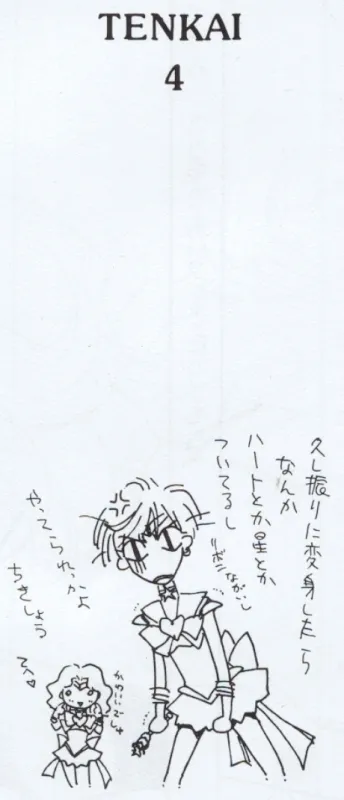 TENKAI
4
久し振りに変身したら
なんか
ハートとか星とか
ついてるし
リボンながいし
やってられっかよ
ちきしょう
かわいいぞ